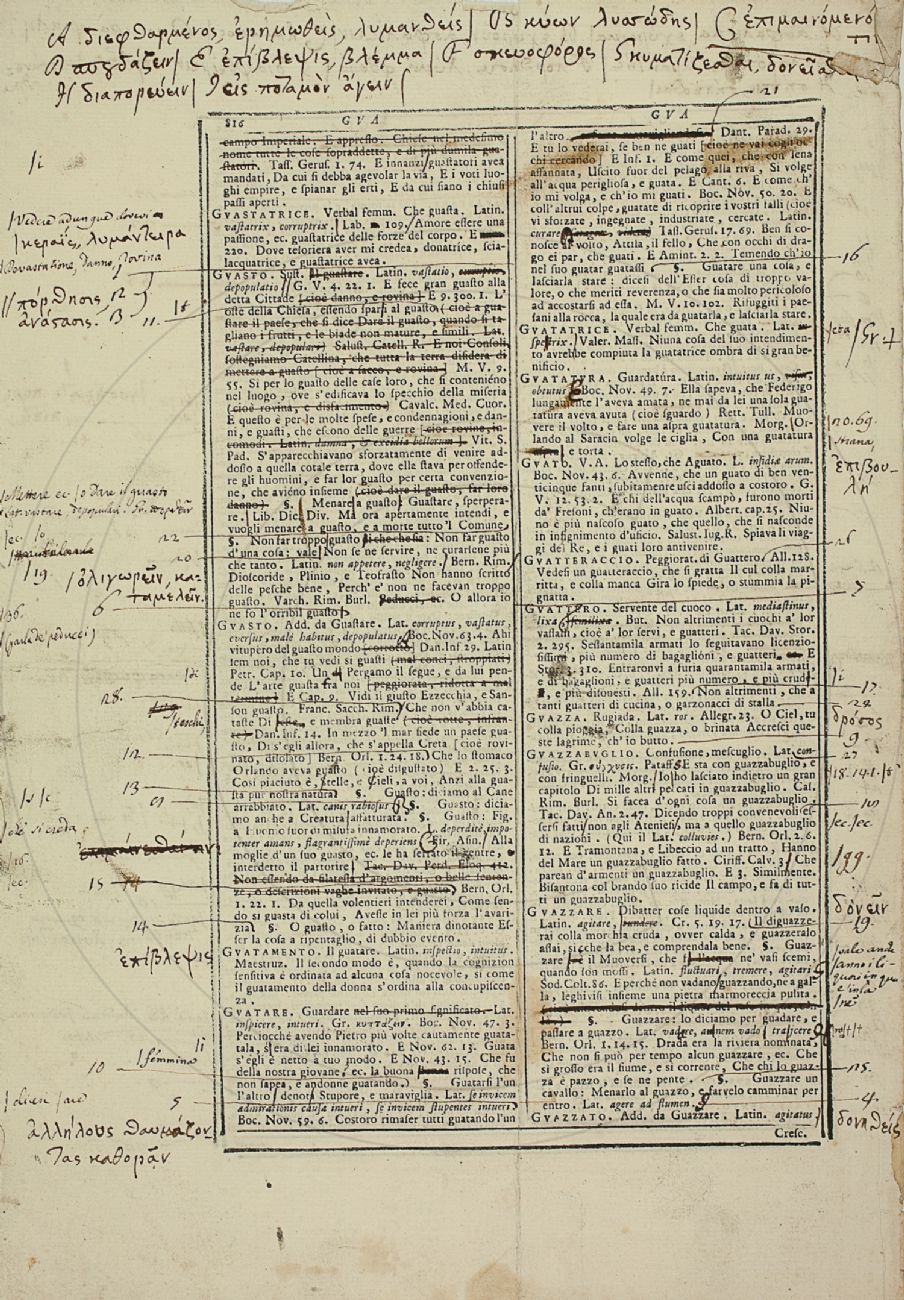 A διεφθαρμένος, ἐρημωθεὶς, λυμανθείς | B κύων λυσσώδης | C ἐπιμαινόμενο
E ἐπίβλεψις, βλέμμα | F σκευοφόρος | G κυματίζεσθαι, δονεῖσ
H διαπορεύειν | I εἰς ποταμὸν ἄγειν
21
816 GVA
campo Imperiale. E appresso. Chiese nel medesimo
nome tutte le cose sopraddette, e di più dumila gua-
statori. Tass. Geruf. 1. 74. E innanzi guastatori avea
mandati, Da cui si debba agevolar la via, E i voti luo-
ghi empire, e spianar gli erti, E da cui siano i chiusi
passi aperti.
GVASTATRICE. Verbal femm. Che guasta. Latin.
vastatrix, corruptrix. Lab. 109. Amore essere una
passione, ec. guastatrice delle forze del corpo. E
220. Dove teloriera aver mi credea, donatrice, scia-
lacquatrice, e guastatrice avea.
GVASTO. Sust. Il guastare. Latin. vastatio,
depopulatio G. V. 4. 22. 1. E fece gran guasto alla
detta Cittade [cioè danno, e rovina] E 9. 300. 1. L'
oste della Chiesa, essendo sparsi al guasto (cioè a gua-
stare il paese, che si dice Dare il guasto, quando si ta-
gliano i frutti, e le biade non mature, e simili. Lat.
vastare, depopulari) Salust. Catell. R. E noi Consoli,
sostegniamo Catellina, che tutta la terra disidera di
mettere a guasto [cioè a sacco, e rovina] M. V. 9.
55. Si per lo guasto delle case loro, che si conteniéno
nel luogo, ove s'edificava lo specchio della miseria
(cioè rovina, e disfacimento) Cavalc. Med. Cuor.
E questo è per le molte spese, e condennagioni, e dan-
ni, e guasti, che escono delle guerre [cioè rovine, in-
comodi. Latin. damna, & excidia bellorum] Vit. S.
Pad. S'apparecchiavano sforzatamente di venire ad-
dosso a quella cotale terra, dove elle stava per offende-
re gli huomini, e far lor guasto per certa convenzio-
ne, che aviéno insieme (cioè dare il guasto, far loro
danno) §. Menare a guasto: Guastare, sperpera-
re. Lib. Dic. Div. Ma ora apertamente intendi, e
vuogli menare a guasto, e a morte tutto 'l Comune
§. Non far troppo guasto di che che sia: Non far guasto
d'una cosa: vale Non se ne servire, ne curarsene più
che tanto. Latin. non appetere, negligere. Bern. Rim.
Dioscoride, Plinio, e Teofrasto Non hanno scritto
delle pesche bène, Perch' e' non ne facévan troppo
guasto. Varch. Rim. Burl. Peducci, ec. O allora io
ne fo l'orribil guasto
GVASTO. Add. da Guastare. Lat. corruptus, vastatus,
eversus, male habitus, depopulatus Boc. Nov. 63. 4. Ahi
vitupèro del guasto mondo (corrotto) Dan. Inf 29. Latin
sem noi, che tu vedi si guasti (mal conci, stroppiati)
Petr. Cap. 10. Un di Pergamo il segue, e da lui pen-
de L'arte guasta fra noi [peggiorata, ridotta a mal
E Cap. 9. Vidi il giusto Ezzecchia, e San-
son guasto. Franc. Sacch. Rim. Che non v'abbia ca-
taste Di e membra guaste (cioè rotte, infran-
te) Dan. Inf. 14. In mezzo 'l mar siede un paese gua-
sto, Di s'egli allora, che s'appella Creta [cioè rovi-
nato, disolato] Bern. Orl. 1. 24. 18. Che lo stomaco
Orlando aveva guasto (cioè disgustato) E 2. 25. 3.
Così piaciuto è, stelle, e Cieli, a voi, Anzi alla gua-
sta pur nostra natura §. Guasto: diciamo al Cane
arrabbiato. Lat. canis rabiosus §. Guasto: dicia-
mo anche a Creatura affatturata. §. Guasto: Fig.
a Huomo fuor di misura innamorato. L. deperditè impo-
tenter amans, flagrantissimè deperiens Fir. Asin. Alla
moglie d'un suo guasto, ec. le ha serrato il ventre,
interdetto il partorire Tac. Dav. Perd. Eloq.
Non essendo da filatessa d'argomenti, o belle senten-
ze, o descrizioni vaghe invitato, e guasto) Bern. Orl.
1. 22. 1. Da quella volentieri intenderei, Come sen-
do si guasta di colui, Avesse in lei più forza l'avari-
zia §. O guasto, o fatto: Maniera dinotante Es-
ser la cosa a ripentaglio, di dubbio evento.
GVATAMENTO. Il guatare. Latin. inspectio, intuitus.
Maestruz. Il secondo modo è, quando la cognizion
sensitiva è ordinata ad alcuna cosa nocevole, si come
il guatamento della donna s'ordina alla concupiscen-
za.
GVATARE. Guardare nel suo primo significato. Lat.
inspicere, intueri. Gr. κυπταζειν. Boc. Nov. 47. 3.
Perciocchè avendo Pietro più volte cautamente guata-
tala, s'era di lei innamorato. E Nov. 62. 13. Guata
s'egli è netto a tuo modo. E Nov. 43. 15. Che fu
della nostra giovane, ec. la buona rispose, che
non sapea, e andonne guatando.) §. Guatarsi l'un
l'altro denoti Stupore, e maraviglia. Lat. se invicem
admirationis causa intueri, se invicem stupentes intueri
Boc. Nov. 59. 6. Costoro rimaser tutti guatando l'un
GVA
l'altro Dant. Parad. 29.
E tu lo vederai, se ben ne guati [cioè ne vai cogli oc-
chi cercando] E Inf. 1. E come quei, che con lena
affannata, Uscito fuor del pelago alla riva, Si volge
all'acqua perigliosa, e guata. E Cant. 6. E come ch'
io mi volga, e ch'io mi guati. Boc. Nov. 50. 20. E
coll'altrui colpe, guatate di ricoprire i vostri falli (cioè
vi sforzate, ingegnate, industriate, cercate. Latin.
curare Tass. Geruf. 17. 69. Ben si co-
nosce al volto, Attila, il fello, Che con occhi di dra-
go ei par, che guati. E Amint. 2. 2. Temendo ch'io
nel suo guatar guatassi §. Guatare una cosa, e
lasciarla stare: dicesi dell'Esser cosa di troppo va-
lore, o che meriti reverenza, o che sia molto pericoloso
ad accostarsi ad essa. M. V. 10. 102. Rifuggiti i pae-
sani alla rocca, la quale era da guatarla, e lasciarla stare.
GVATATRICE. Verbal femm. Che guata. Lat.
spectrix. Valer. Mass. Niuna cosa del suo intendimen-
to avrebbe compiuta la guatatrice ombra di si gran be-
nificio.
GVATATURA. Guardatúra. Latin. intuitus us,
obtutus Boc. Nov. 49. 7. Ella sapeva, che Federigo
lungamente l'aveva amata, ne mai da lei una sola gua-
tatura aveva avuta (cioè sguardo) Rett. Tull. Muo-
vere il volto, e fare una aspra guatatura. Morg. Or-
lando al Saracin volge le ciglia, Con una guatatura
aspra, e torta.
GVATO. V. A. Lo stesso, che Aguato. L. insidiæ arum.
Boc. Nov. 43. 6. Avvenne, che un guato di ben ven-
ticinque fanti, subitamente uscì addosso a costoro. G.
V. 12. 53. 2. E chi dell'acqua scampò, furono morti
da' Fresoni, ch'erano in guato. Albert. cap. 25. Niu-
no è più nascoso guato, che quello, che si nasconde
in infignimento d'uficio. Salust. Iug. R. Spiava li viag-
gi del Re, e i guati loro antivenire.
GVATTERACCIO. Peggiorat. di Guattero. All. 128.
Vedesi un guatteraccio, che si gratta Il cul colla mar-
ritta, e colla manca Gira lo spiede, o stummia la pi-
gnatta.
GVATTERO. Servente del cuoco. Lat. mediastinus,
lixa But. Non altrimenti i cuochi a' lor
vassalli, cioè a' lor servi, e guatteri. Tac. Dav. Stor.
2. 295. Sessantamila armati lo seguitavano licenzio-
sissimi, più numero di bagaglioni, e guatteri. E
Stor. 3. 310. Entraronvi a furia quarantamila armati,
e di bagaglioni, e guatteri più numero, e più crud
e più disonesti. All. 159. Non altrimenti, che a
tanti guatteri di cucina, o garzonacci di stalla
GVAZZA. Rugiada. Lat. ros. Allegr. 23. O Ciel, tu
colla pioggia, Colla guazza, o brinata Accresci que-
ste lagrime, ch'io butto.
GVAZZABVGLIO. Confusione, mescuglio. Lat. con-
fusio. Gr. σύγχυσις. Pataff. E sta con guazzabuglio, e
con fringuelli. Morg. Io ho lasciato indietro un gran
capitolo Di mille altri peccati in guazzabuglio. Cas.
Rim. Burl. Si facea d'ogni cosa un guazzabuglio
Tac. Dav. An. 2. 47. Dicendo troppi convenevoli es-
sersi fatti non agli Ateniesi, ma a quello guazzabuglio
di nazioni. (Qui il Lat. colluvies.) Bern. Orl. 2. 6.
12. E Tramontana, e Libeccio ad un tratto, Hanno
del Mare un guazzabuglio fatto. Ciriff. Calv. 3. Che
parean d'armenti un guazzabuglio. E 3. Similmente.
Bisantona col brando suo ricide Il campo, e fa di tut-
ti un guazzabuglio.
GVAZZARE. Dibatter cose liquide dentro a vaso.
Latin. agitare, Cr. 5. 19. 17. Il diguazze-
rai colla morchia cruda, ovver calda, e guazzeralo
assai, sicche la bea, e comprendala bene. §. Guaz-
zare è il Muoversi, che fa l'acqua ne' vasi scemi,
quando son mossi. Latin. fluctuari, tremere, agitari
Sod. Colt. 86. E perchè non vadano guazzando, ne a gal-
la, leghivisi insieme una pietra marmoreccia pulita.
§. Guazzare: lo diciamo per guadare, e
passare a guazzo. Lat. vadare, amnem vado traiicere
Bern. Orl. 1. 14. 15. Drada era la riviera nominata
Che non si può per tempo alcun guazzare, ec. Che
si grosso era il fiume, e si corrente, Che chi lo guaz-
za è pazzo, e se ne pente. §. Guazzare un
cavallo: Menarlo al guazzo, e farvelo camminar per
entro. Lat. agere ad flumen.
GVAZZATO. Add. da Guazzare. Latin. agitatus
Cresc.
λυμάντειρα
πόρθησις 12
ἀνάστασις. 13 11
22
20
19
ὀλιγωρεῖν, κα-
ταμελεῖν.
6
28.
12
13
15
14
ἐπίβλεψις
10 femmina
5
ἀλλήλους θαυμάζον
τας καθορᾶν
16
ἐπιβου-
λή
26
17
δρόσος
9
27
18. 14. 1.
10
199.
δονεῖν
19
15.
4.
δονηθείς